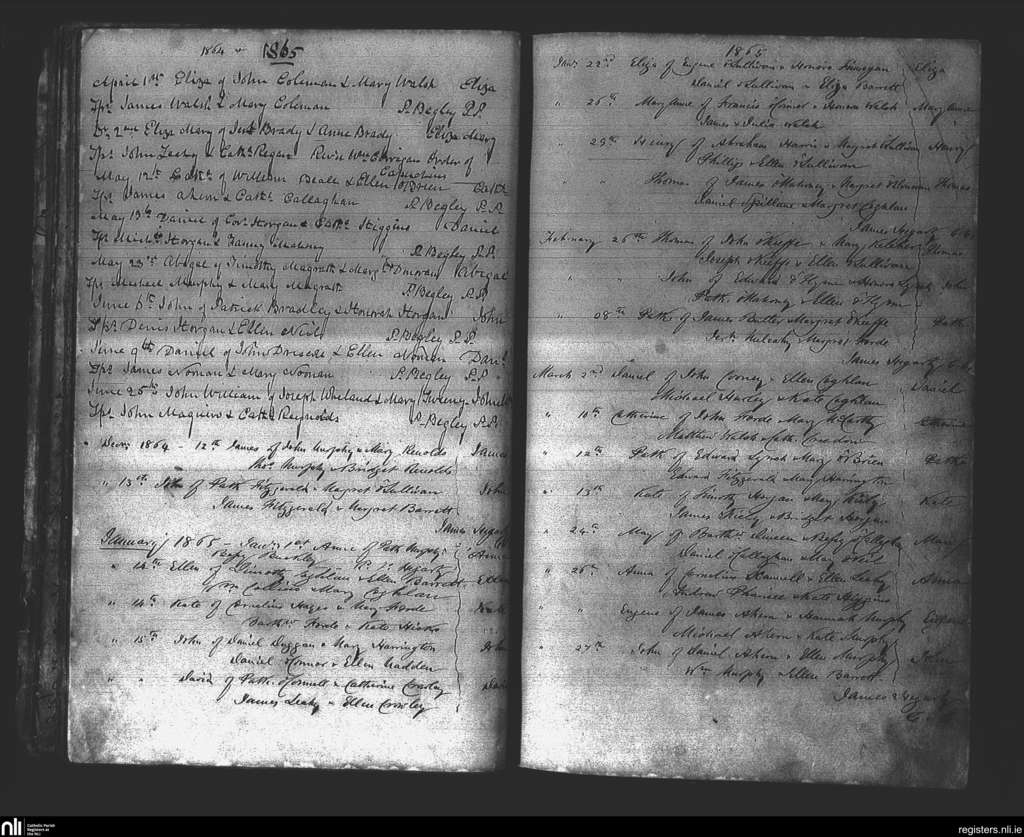 1864 & 1865
April 1st Eliza of John Coleman & Mary Walsh Eliza
Sps. James Walsh & Mary Coleman P. Begley P.P.
Do. 2nd Eliza Mary of Brady & Anne Brady Eliza Mary
Sps. John Leahy & Cathe. Regan Revd. Wm. Corrigan Order of
Capuchins
May 12th Cathe. of William Beale & Ellen O'Brien Cathe.
Sps. James Ahern & Cathe. Callaghan P. Begley P.P.
May 13th Daniel of Cors. Horgan & Cathe. Higgins Daniel
Sps. Michl. Horgan & Fanny Mahony P. Begley P.P.
May 23rd Abigal of Timothy Magrath & Margt. Donovan Abigal
Sps. Michael Murphy & Mary Magrath P. Begley P.P.
June 6th John of Patrick Bradley & Honorah Horgan John
Sps. Denis Horgan & Ellen Neil P. Begley P.P.
June 9th Daniel of John & Ellen Noonan Danl.
Sps. James Noonan & Mary Noonan P. Begley P.P.
June 25th John William of Joseph Wheland & Mary John
Sps. John Maguire & Cathe. Reynolds P. Begley P.P.
" Decr. 1864 - 12th James of John Murphy & Mary Renolds James
Thos. Murphy & Bridget Renolds
" 13th John of Patk. Fitzgerald & Margret O'Sullivan John
James Fitzgerald & Margret Barrett
James Hegarty
January 1865 - Jany. 1st Anne of Patk. Murphy & Anne
Buckley P. J. Hegarty
" 14th Ellen of Timothy Coghlan & Ellen Barrett Ellen
Wm. Collins & Mary Coghlan
" 14th Kate of Cornelius Hayes & Mary Forde Kate
Forde & Kate Hicks
" 15th John of Daniel Duggan & Mary Harrington John
Daniel O'Connor & Ellen Madden
" " David of Patk. O'Connell & Catherine Crowley David
James Leahy & Ellen Crowley
1865
Jany. 22nd Eliza of Eugene O'Sullivan & Honora Finnegan Eliza
Daniel O'Sullivan & Eliza Barrett
" 26th Mary Anne of Francis & Honora Walsh Mary Anne
James & Julia Walsh
" 29th Henry of Abraham Harris & Margret O'Sullivan Henry
Phillip & Ellen O'Sullivan
" " Thomas of James O'Mahony & Margret Thomas
Daniel Spillane & Margret Coghlan
James Hegarty C.C.
February 26th Thomas of John O'Keeffe & Mary Kelleher Thomas
Joseph O'Keeffe & Ellen O'Sullivan
" " John of Edward & Honora Lynch John
Patk. O'Mahony & Ellen
" 28th Patk. of James Butler Margret O'Keeffe Patk.
Mulcahy Margret Forde
James Hegarty C.C.
March 2nd Daniel of John Cooney & Ellen Coghlan Daniel
Michael & Kate Coghlan
" 10th Catherine of John Forde Mary McCarthy Catherine
Matthew Walsh & Cathe. Creedon
" 12th Patk. of Edward Lynch Mary O'Brien Patk.
Edward Fitzgerald Mary Harrington
" 13th Kate of Timothy Horgan & Mary Kate
James & Bridget Horgan
" 24th Mary of Barthw. & O'Callaghan Mary
Daniel O'Callaghan Mary O'Neil
" 26th Anna of Cornelius & Ellen Leahy Anna
Andrew & Kate Higgins
" " Eugene of James Ahern & Hannah Murphy Eugene
Michael Ahern & Kate Murphy
" 27th John of Daniel Ahern & Ellen Murphy John
Wm. Murphy & Ellen Barrett
James Hegarty
C.C.
nli Catholic Parish
Registers at
the NLI
registers.nli.ie